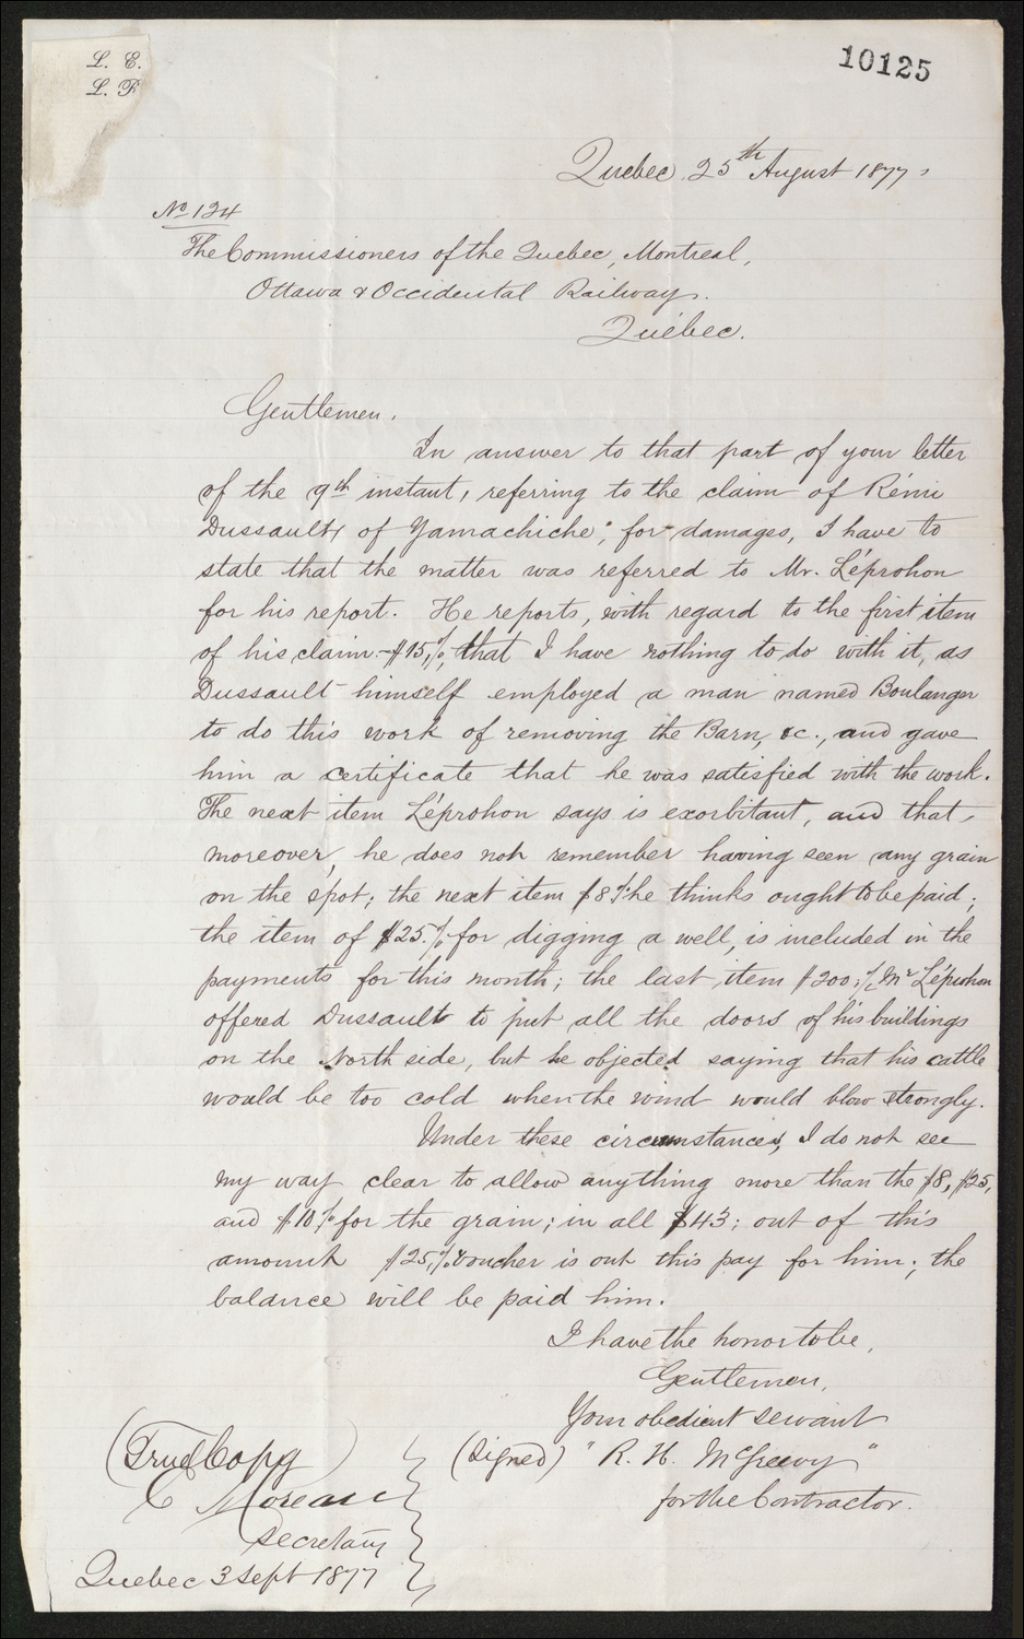 L. E.
L. P
10125
Quebec, 25th August 1877.
No 124
The Commissioners of the Quebec, Montreal,
Ottawa & Occidental Railway.
Québec.
Gentlemen.
In answer to that part of your letter
of the 9th instant, referring to the claim of Rémi
Dussault, of Yamachiche, for damages, I have to
state that the matter was referred to Mr. Léprohon
for his report. He reports, with regard to the first item
of his claim - $15,%, that I have nothing to do with it, as
Dussault himself employed a man named Boulanger
to do this work of removing the Barn, &c., and gave
him a certificate that he was satisfied with the work.
The next item Léprohon says is exorbitant, and that,
moreover, he does not remember having seen any grain
on the spot; the next item $8.% he thinks ought to be paid;
the item of $25.% for digging a well, is included in the
payments for this month; the last item $200.% Mr Léprohon
offered Dussault to put all the doors of his buildings
on the North side, but he objected saying that his cattle
would be too cold when the wind would blow strongly.
Under these circumstances, I do not see
my way clear to allow anything more than the $8, $25,
and $10.% for the grain; in all $43; out of this
amount $25,% voucher is out this pay for him; the
balance will be paid him.
I have the honor to be,
Gentlemen,
Your obedient servant
(signed) "R. H. McGreevy"
for the Contractor.
(True Copy)
C Moreau
Secretary
Quebec 3 Sept 1877